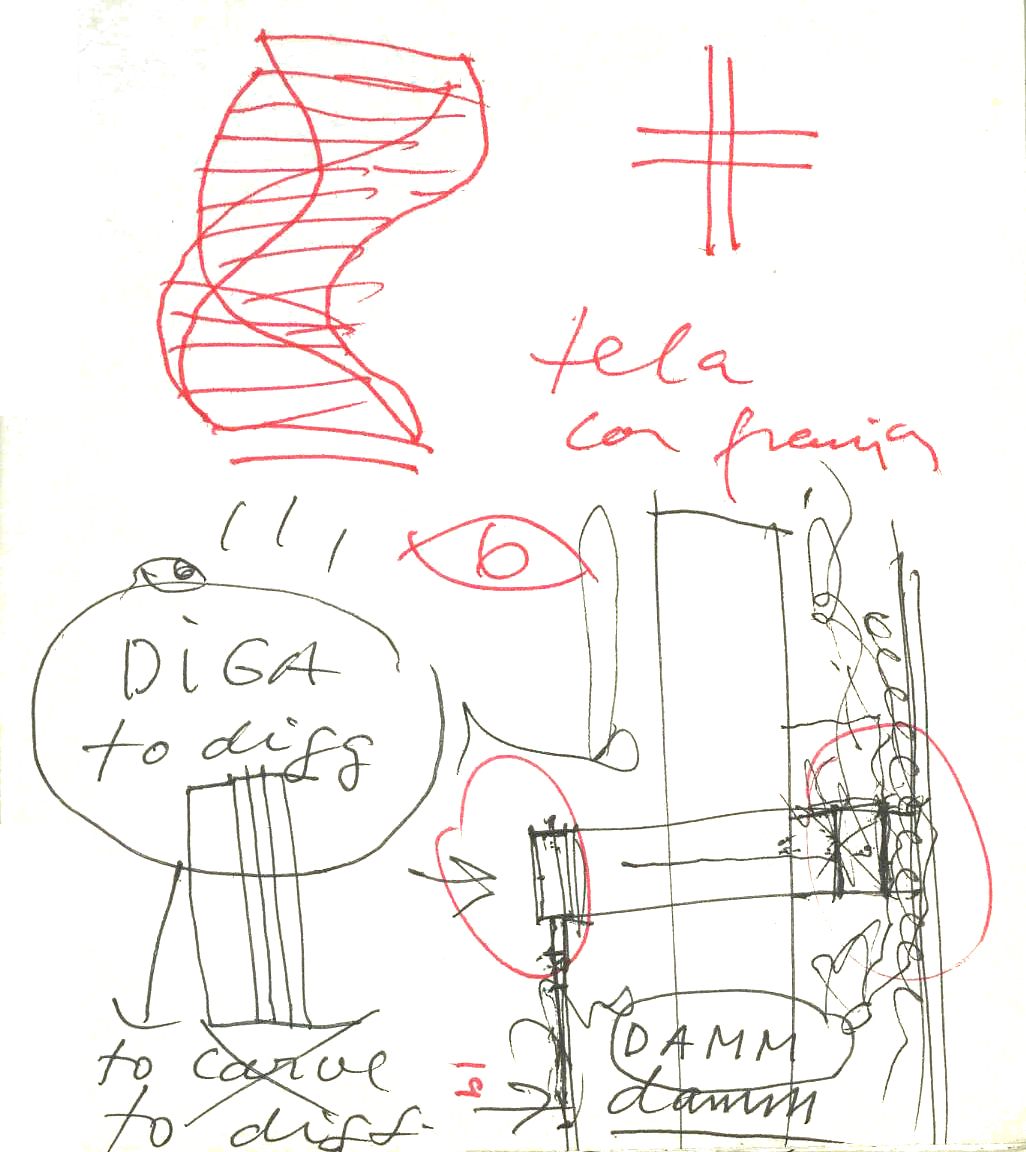 tela
con frangia
6
DiGA
to digg
to carve
to digg.
DAMM
damm